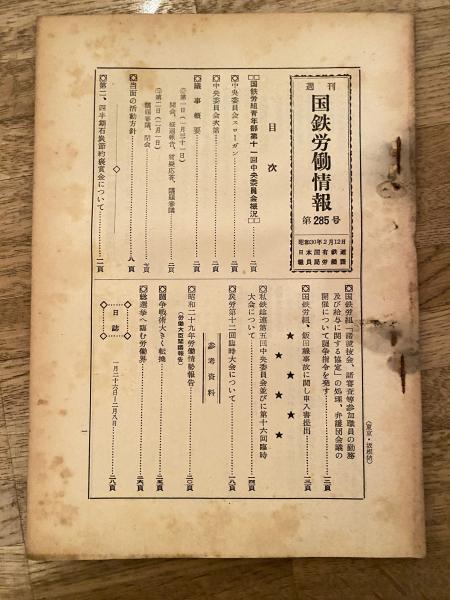 週刊
国鉄労働情報
第285号
昭和30年2月12日
日本国有鉄道
職員局労働課
目次
国鉄労組青年部第十一回中央委員会概況
中央委員会スローガン……二頁
中央委員会次第……二頁
議事概要……一頁
第一日（一月三十一日）
開会、経過報告、質疑応答、議題審議
第二日（二月一日）
議題審議、閉会……頁
当面の活動方針……八頁
第二、四半期石炭節約褒賞金について……二頁
（東京・坂根納）
国鉄労組「諸競技会、諸審査等参加職員の勤務
及び給与に関する協定」の処理、弁護団会議の
開催について闘争指令を発す……一三頁
国鉄労組、飯田線事故に関し申入書提出……一三頁
★★★★★
私鉄総連第五回中央委員会並びに第十六回臨時
大会について……一四頁
炭労第十二回臨時大会について……一八頁
参考資料
昭和二十九年労働情勢報告……二〇頁
（労働大臣閣議報告）
闘争戦術大きく転換……二五頁
総選挙へ臨む労働界……二六頁
日誌
一月二十六日―二月八日……二八頁